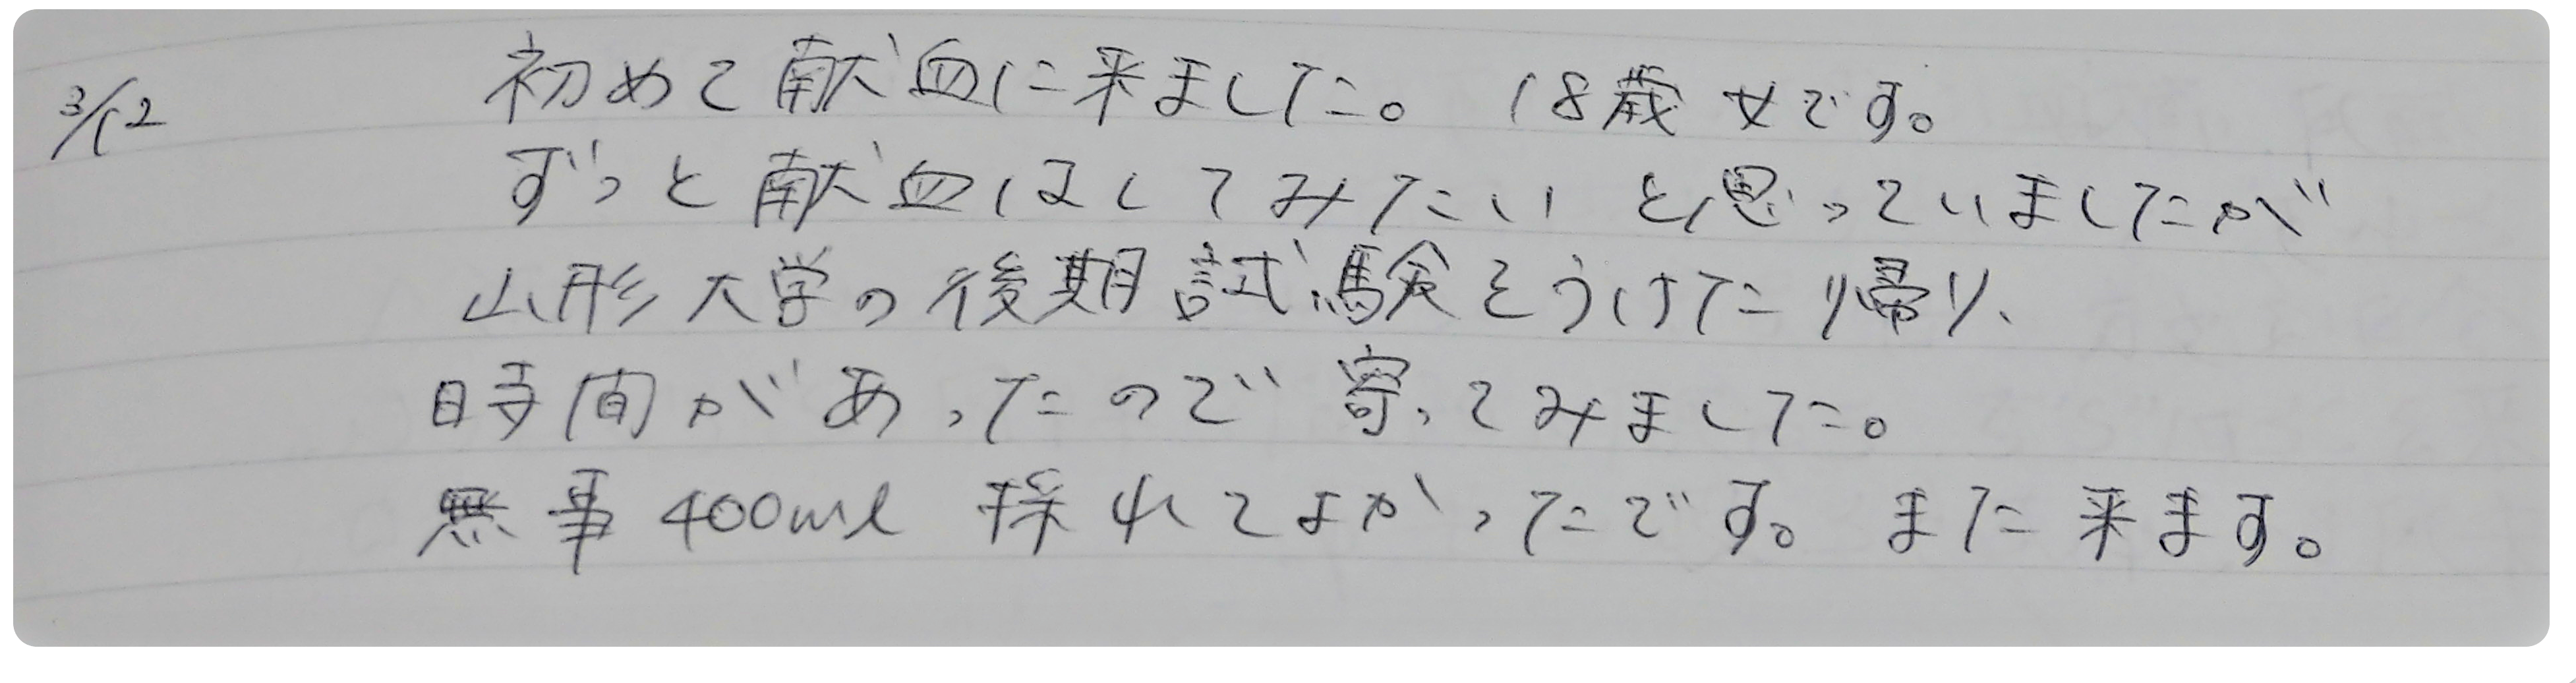 3/12 初めて献血に来ました。 18歳女です。
ずっと献血はしてみたいと思っていましたが
山形大学の後期試験をうけた帰り、
時間があったので寄ってみました。
無事400ml 採れてよかったです。また来ます。